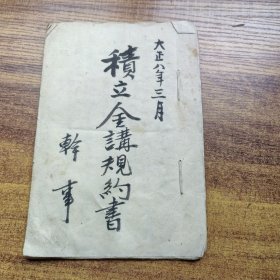 大正八年三月
積立金講規約書
幹事